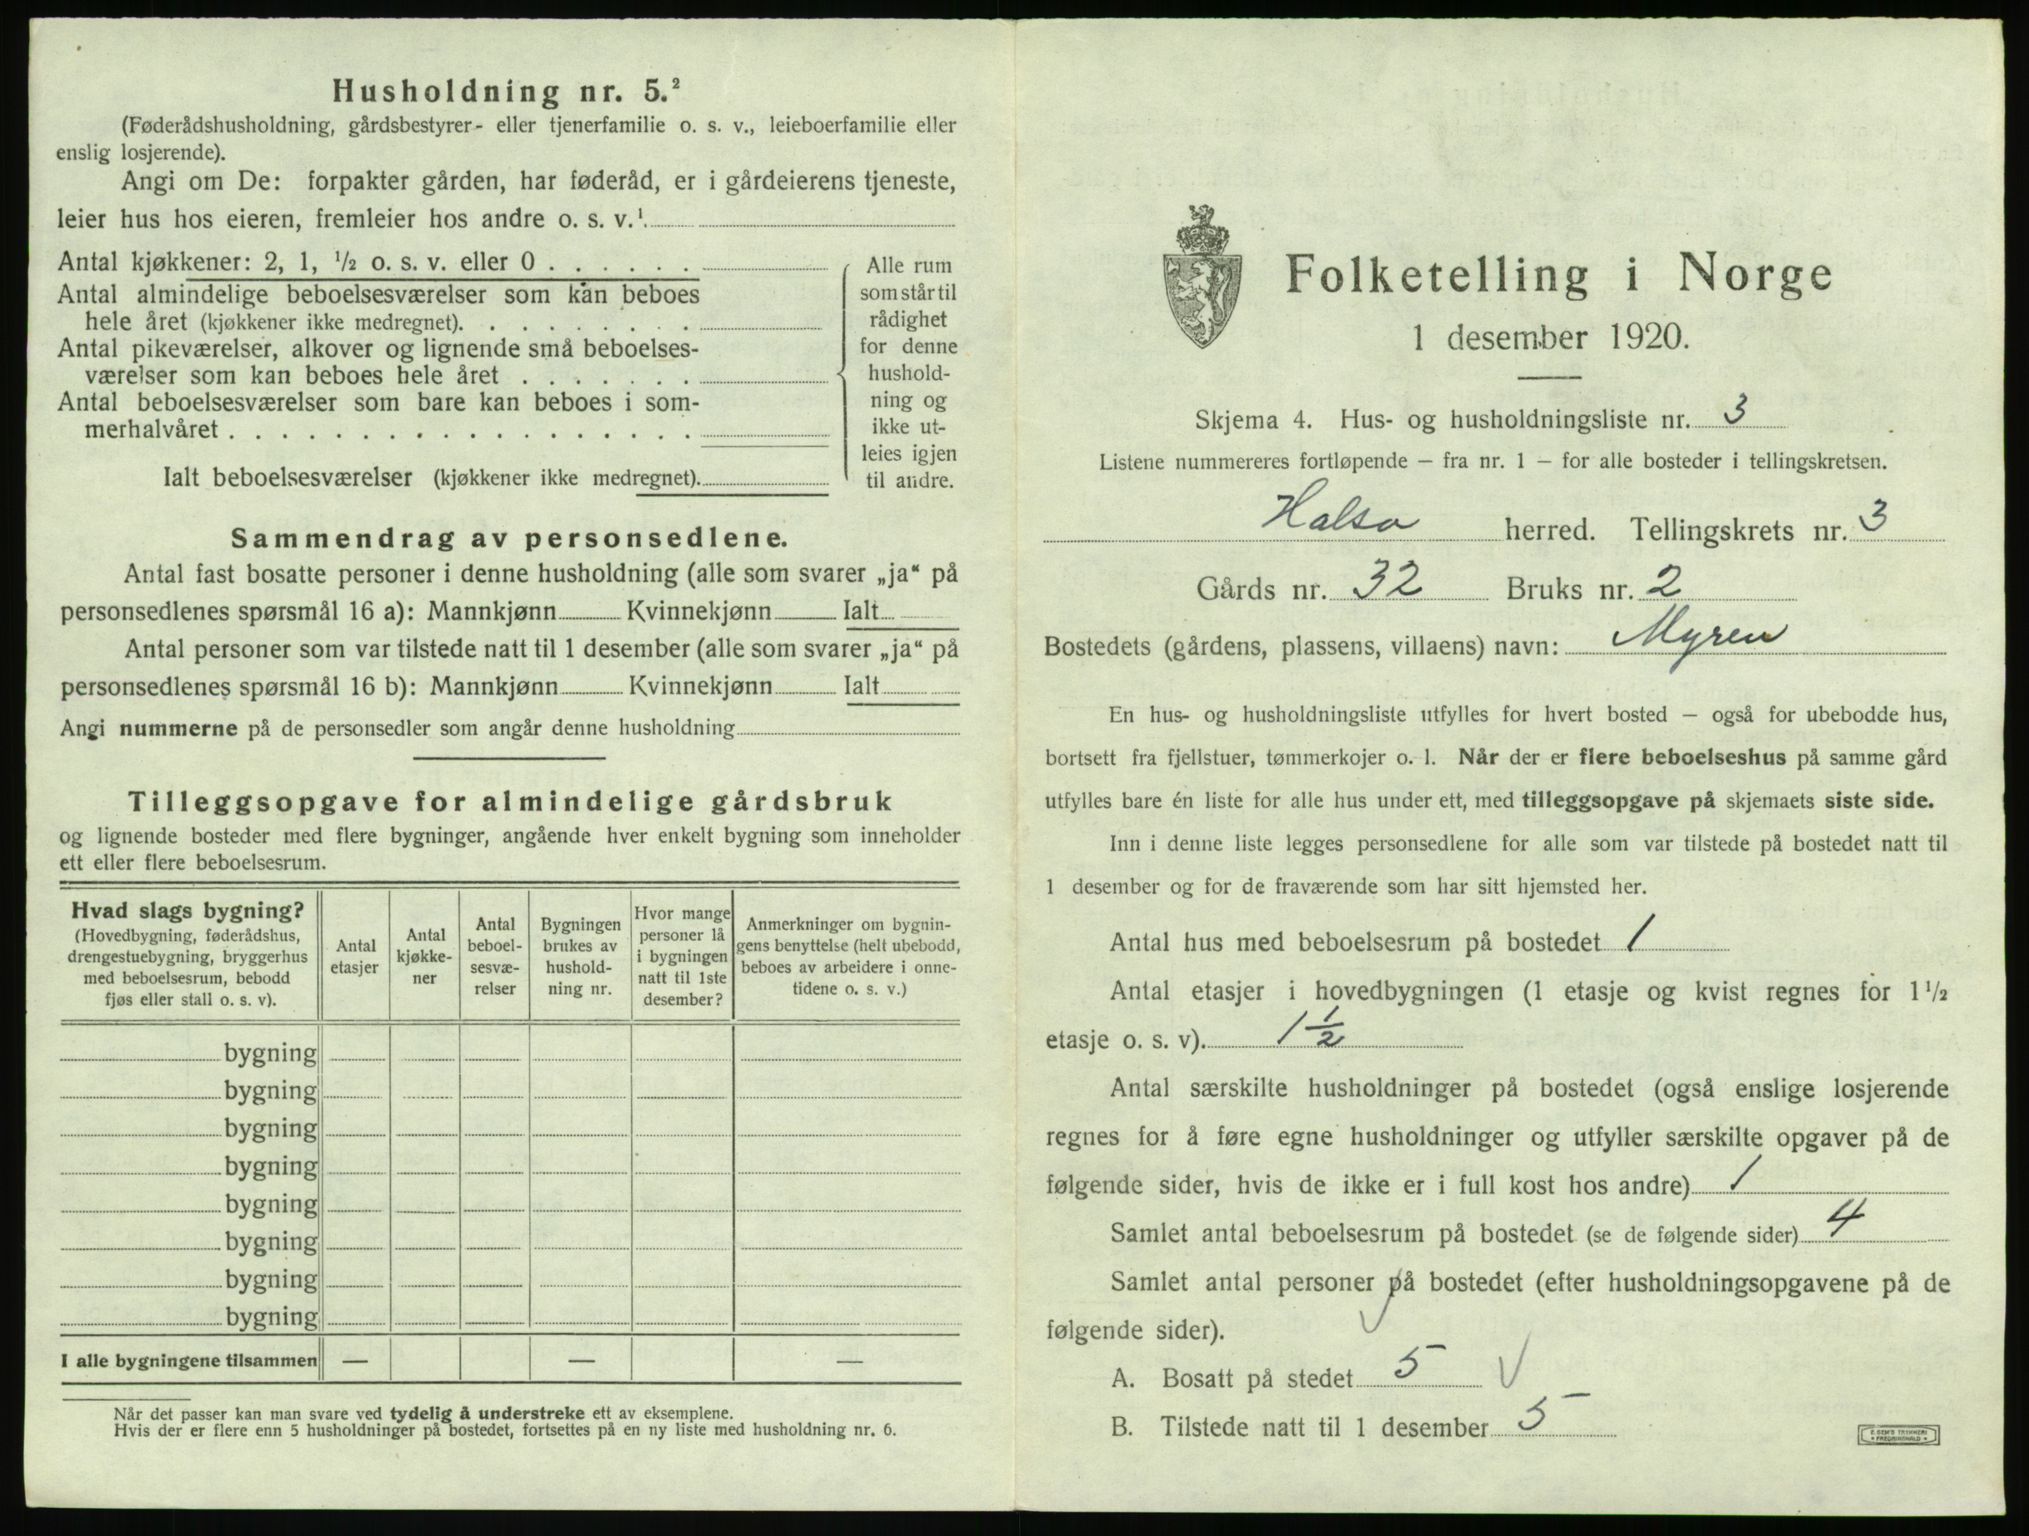 Husholdning nr. 5.²
(Føderådshusholdning, gårdsbestyrer- eller tjenerfamilie o. s. v., leieboerfamilie eller
enslig losjerende).
Angi om De: forpakter gården, har føderåd, er i gårdeierens tjeneste,
leier hus hos eieren, fremleier hos andre o. s. v.¹
Antal kjøkkener: 2, 1, ½ o. s. v. eller 0 . . . . . .
Antal almindelige beboelsesværelser som kan beboes
hele året (kjøkkener ikke medregnet). . . . . . . . .
Antal pikeværelser, alkover og lignende små beboelses-
værelser som kan beboes hele året . . . . . . .
Antal beboelsesværelser som bare kan beboes i som-
merhalvåret . . . . . . . . . . . . . . . . . .
Ialt beboelsesværelser (kjøkkener ikke medregnet).
Alle rum
som står til
rådighet
for denne
hushold-
ning og
ikke ut-
leies igjen
til andre.
Sammendrag av personsedlene.
Antal fast bosatte personer i denne husholdning (alle som svarer „ja“ på
personsedlenes spørsmål 16 a): Mannkjønn Kvinnekjønn Ialt
Antal personer som var tilstede natt til 1 desember (alle som svarer „ja“ på
personsedlenes spørsmål 16 b): Mannkjønn Kvinnekjønn Ialt
Angi nummerne på de personsedler som angår denne husholdning
Tilleggsopgave for almindelige gårdsbruk
og lignende bosteder med flere bygninger, angående hver enkelt bygning som inneholder
ett eller flere beboelsesrum.
Hvad slags bygning?
(Hovedbygning, føderådshus,
drengestuebygning, bryggerhus
med beboelsesrum, bebodd
fjøs eller stall o. s. v).
Antal
etasjer
Antal
kjøkke-
ner
Antal
beboel-
sesvæ-
relser
Bygningen
brukes av
hushold-
ning nr.
Hvor mange
personer lå
i bygningen
natt til 1ste
desember?
Anmerkninger om bygnin-
gens benyttelse (helt ubebodd,
beboes av arbeidere i onne-
tidene o. s. v.)
bygning
bygning
bygning
bygning
bygning
bygning
bygning
bygning
I alle bygningene tilsammen — — —
Når det passer kan man svare ved tydelig å understreke ett av eksemplene.
Hvis der er flere enn 5 husholdninger på bostedet, fortsettes på en ny liste med husholdning nr. 6.
Folketelling i Norge
1 desember 1920.
Skjema 4. Hus- og husholdningsliste nr. 3
Listene nummereres fortløpende – fra nr. 1 – for alle bosteder i tellingskretsen.
Halsa herred. Tellingskrets nr. 3
Gårds nr. 32 Bruks nr. 2
Bostedets (gårdens, plassens, villaens) navn: Myren
En hus- og husholdningsliste utfylles for hvert bosted – også for ubebodde hus,
bortsett fra fjellstuer, tømmerkojer o. l. Når der er flere beboelseshus på samme gård
utfylles bare én liste for alle hus under ett, med tilleggsopgave på skjemaets siste side.
Inn i denne liste legges personsedlene for alle som var tilstede på bostedet natt til
1 desember og for de fraværende som har sitt hjemsted her.
Antal hus med beboelsesrum på bostedet 1
Antal etasjer i hovedbygningen (1 etasje og kvist regnes for 1½
etasje o. s. v). 1½
Antal særskilte husholdninger på bostedet (også enslige losjerende
regnes for å føre egne husholdninger og utfyller særskilte opgaver på de
følgende sider, hvis de ikke er i full kost hos andre) 1
Samlet antal beboelsesrum på bostedet (se de følgende sider) 4
Samlet antal personer på bostedet (efter husholdningsopgavene på de
følgende sider).
A. Bosatt på stedet 5
B. Tilstede natt til 1 desember 5
E. SEM'S TRYKKERI
FREDRIKSHALD